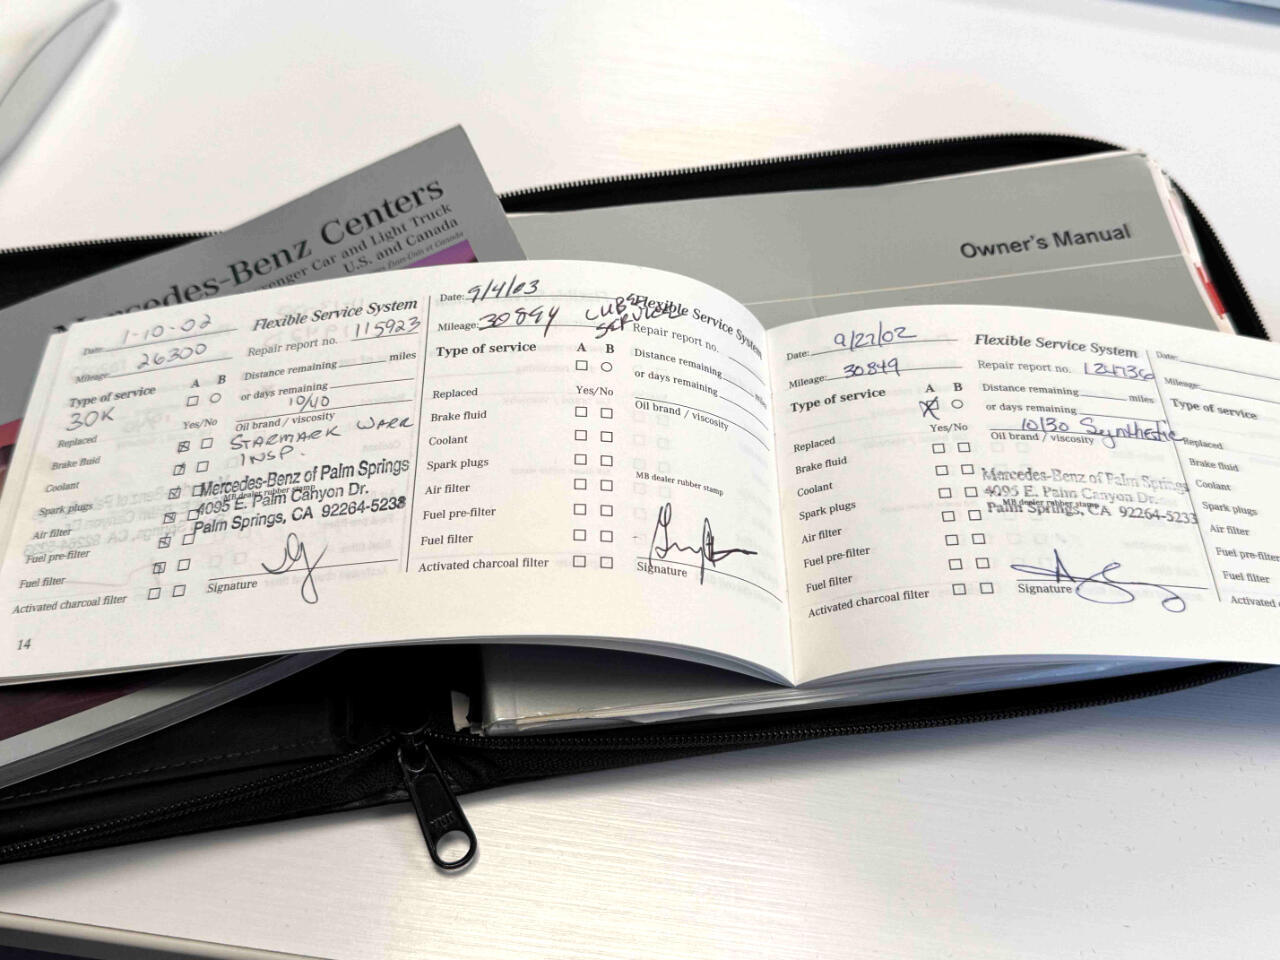 Mercedes-Benz Centers
Passenger Car and Light Truck
U.S. and Canada
Owner's Manual
Date: 1-10-02
Flexible Service System
Mileage: 26300
Repair report no. 115923
Type of service A B
30K
Distance remaining miles
or days remaining
10/40
Oil brand / viscosity
STARMARK WARR
INSP.
Replaced Yes/No
Brake fluid
Coolant
Spark plugs
Air filter
Fuel pre-filter
Fuel filter
Activated charcoal filter
Mercedes-Benz of Palm Springs
MB dealer rubber stamp
4095 E. Palm Canyon Dr.
Palm Springs, CA 92264-5238
Signature
14
Date: 9/4/03
Flexible Service System
Mileage: 30894
SERVICE
Repair report no.
Type of service A B
Distance remaining miles
or days remaining
Oil brand / viscosity
Replaced Yes/No
Brake fluid
Coolant
Spark plugs
Air filter
Fuel pre-filter
Fuel filter
Activated charcoal filter
MB dealer rubber stamp
Signature
Date: 9/27/02
Flexible Service System
Mileage: 30849
Repair report no.
Type of service A B
Distance remaining miles
or days remaining
10/30 Synthetic
Oil brand / viscosity
Replaced Yes/No
Brake fluid
Coolant
Spark plugs
Air filter
Fuel pre-filter
Fuel filter
Activated charcoal filter
Mercedes-Benz of Palm Springs
4095 E. Palm Canyon Dr.
MB dealer rubber stamp
Palm Springs, CA 92264-5233
Signature
Date:
Mileage:
Type of service
Replaced
Brake fluid
Coolant
Spark plugs
Air filter
Fuel pre-filter
Fuel filter
Activated